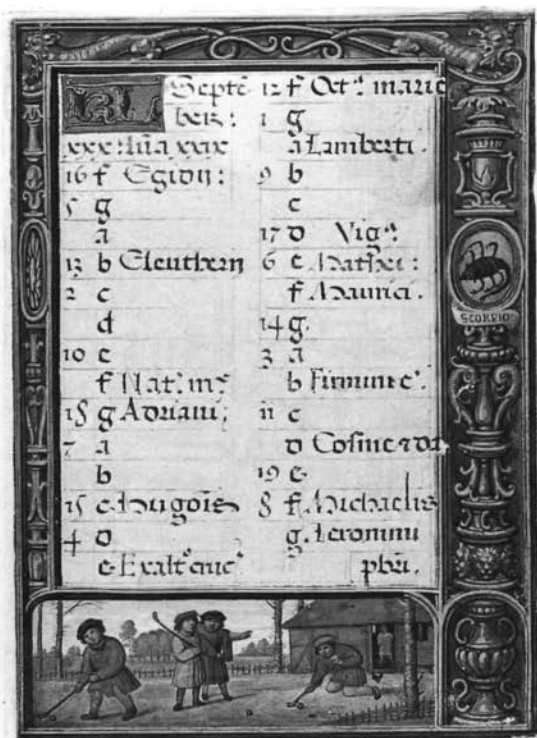 KL Septē
beꝛ:
xxx: lūa xxix
16 f Egidij:
5 g
a
13 b Eleutherij
2 c
d
10 e
f Nat:
18 g Adriani;
7 a
b
15 e
4 d
e Exalt° cruc˜
12 f Oct˜: marie
1 g
a Lamberti.
9 b
c
17 d Vig˜:
6 e Mathei:
f Maurici.
14 g.
3 a
b Firmini
11 c
d Cosme
19 e
8 f. Michaelis
g. Ieronimi
pbri.
SCORPIO